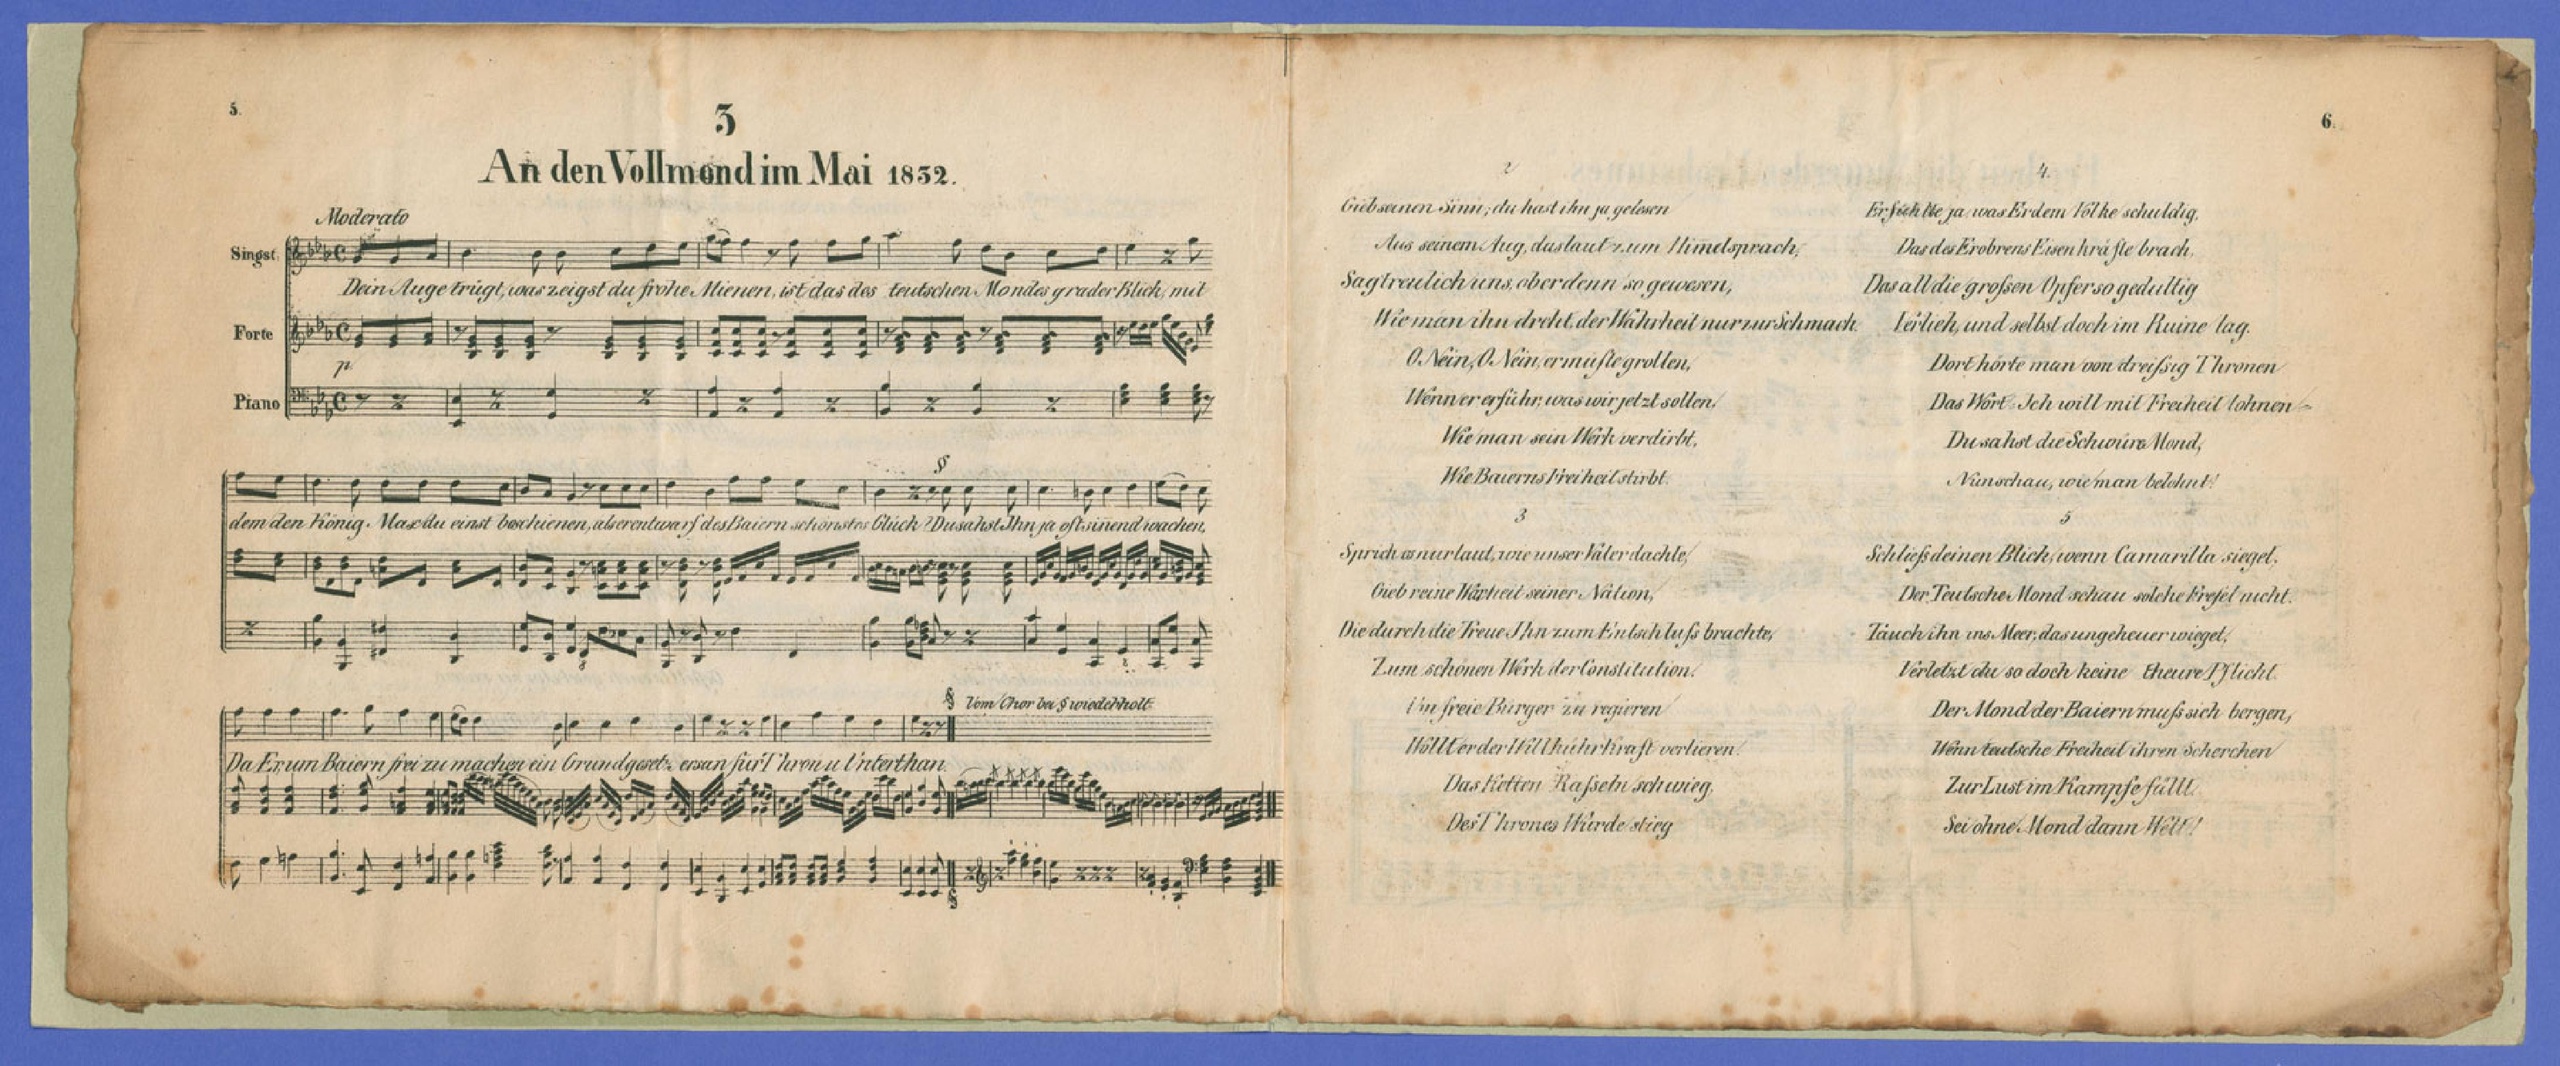 5.
3
An den Vollmond im Mai 1832.
Moderato
Singst.
Dein Auge trügt, was zeigst du frohe Mienen, ist das des teutschen Mondes grader Blick, mit
Forte
p.
Piano
dem den König Max du einst beschienen, als er entwarf des Baiern schönstes Glück? Du sahst Ihn ja oft sinend wachen,
Vom Chor bei § wiederholt.
Da Er, um Baiern frei zu machen ein Grundgesetz ersan für Thron u Unterthan.
6.
2
Gieb seinen Sinn; du hast ihn ja gelesen
Aus seinem Aug, das laut zum Himel sprach,
Sag treulich uns, ob er denn so gewesen,
Wie man ihn dreht, der Wahrheit nur zur Schmach.
O Nein, O Nein, er müſste grollen,
Wenn er erführ, was wir jetzt sollen,
Wie man sein Werk verdirbt,
Wie Baierns Freiheit stirbt.
3
Sprich es nur laut, wie unser Vater dachte,
Gieb reine Warheit seiner Nation,
Die durch die Treue Ihn zum Entschluſs brachte,
Zum schönen Werk der Constitution.
Um freie Bürger zu regieren
Wollt er der Willkühr Kraft verlieren.
Das Ketten Raſseln schwieg,
Des Thrones Würde stieg
4.
Er fühlte ja, was Er dem Volke schuldig,
Das des Erobrers Eisenkräfte brach,
Das all die groſsen Opfer so gedultig
Verlieh, und selbst doch im Ruine lag.
Dort hörte man von dreiſsig Thronen
Das Wort: Ich will mit Freiheit lohnen
Du sahst die Schwüre Mond,
Nun schau, wie man belohnt!
5
Schlieſs deinen Blick, wenn Camarilla sieget,
Der Teutsche Mond schau solche Frefel nicht.
Tauch ihn ins Meer, das ungeheuer wieget,
Verletzt du so doch keine theure Pflicht.
Der Mond der Baiern muſs sich bergen,
Wenn teutsche Freiheit ihren Scherchen
Zur Lust im Kampfe fällt.
Sei ohne Mond dann Welt!